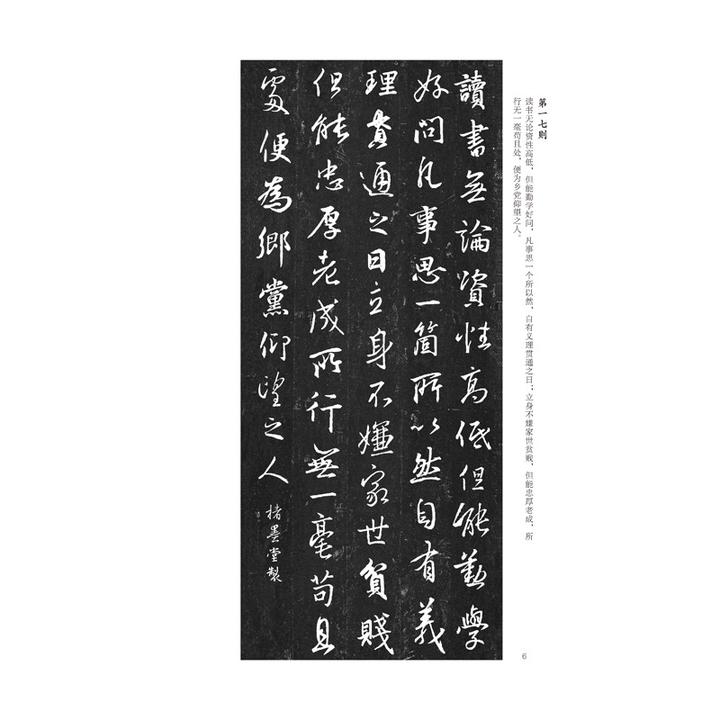 第一七则
读书无论资性高低，但能勤学好问，凡事思一个所以然，自有义理贯通之日；立身不嫌家世贫贱，但能忠厚老成，所
行无一毫苟且处，便为乡党仰望之人。
讀書無論資性高低但能勤學
好問凡事思一箇所以然自有義
理貫通之日立身不嫌家世貧賤
但能忠厚老成所行無一毫苟且
處便為鄉黨仰望之人
楮墨堂製
6